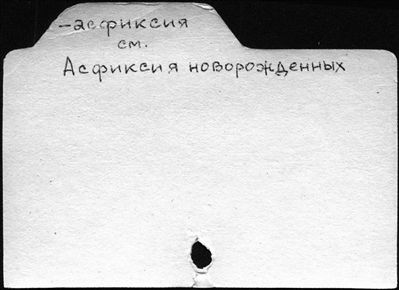 –асфиксия
см.
Асфиксия новорожденных